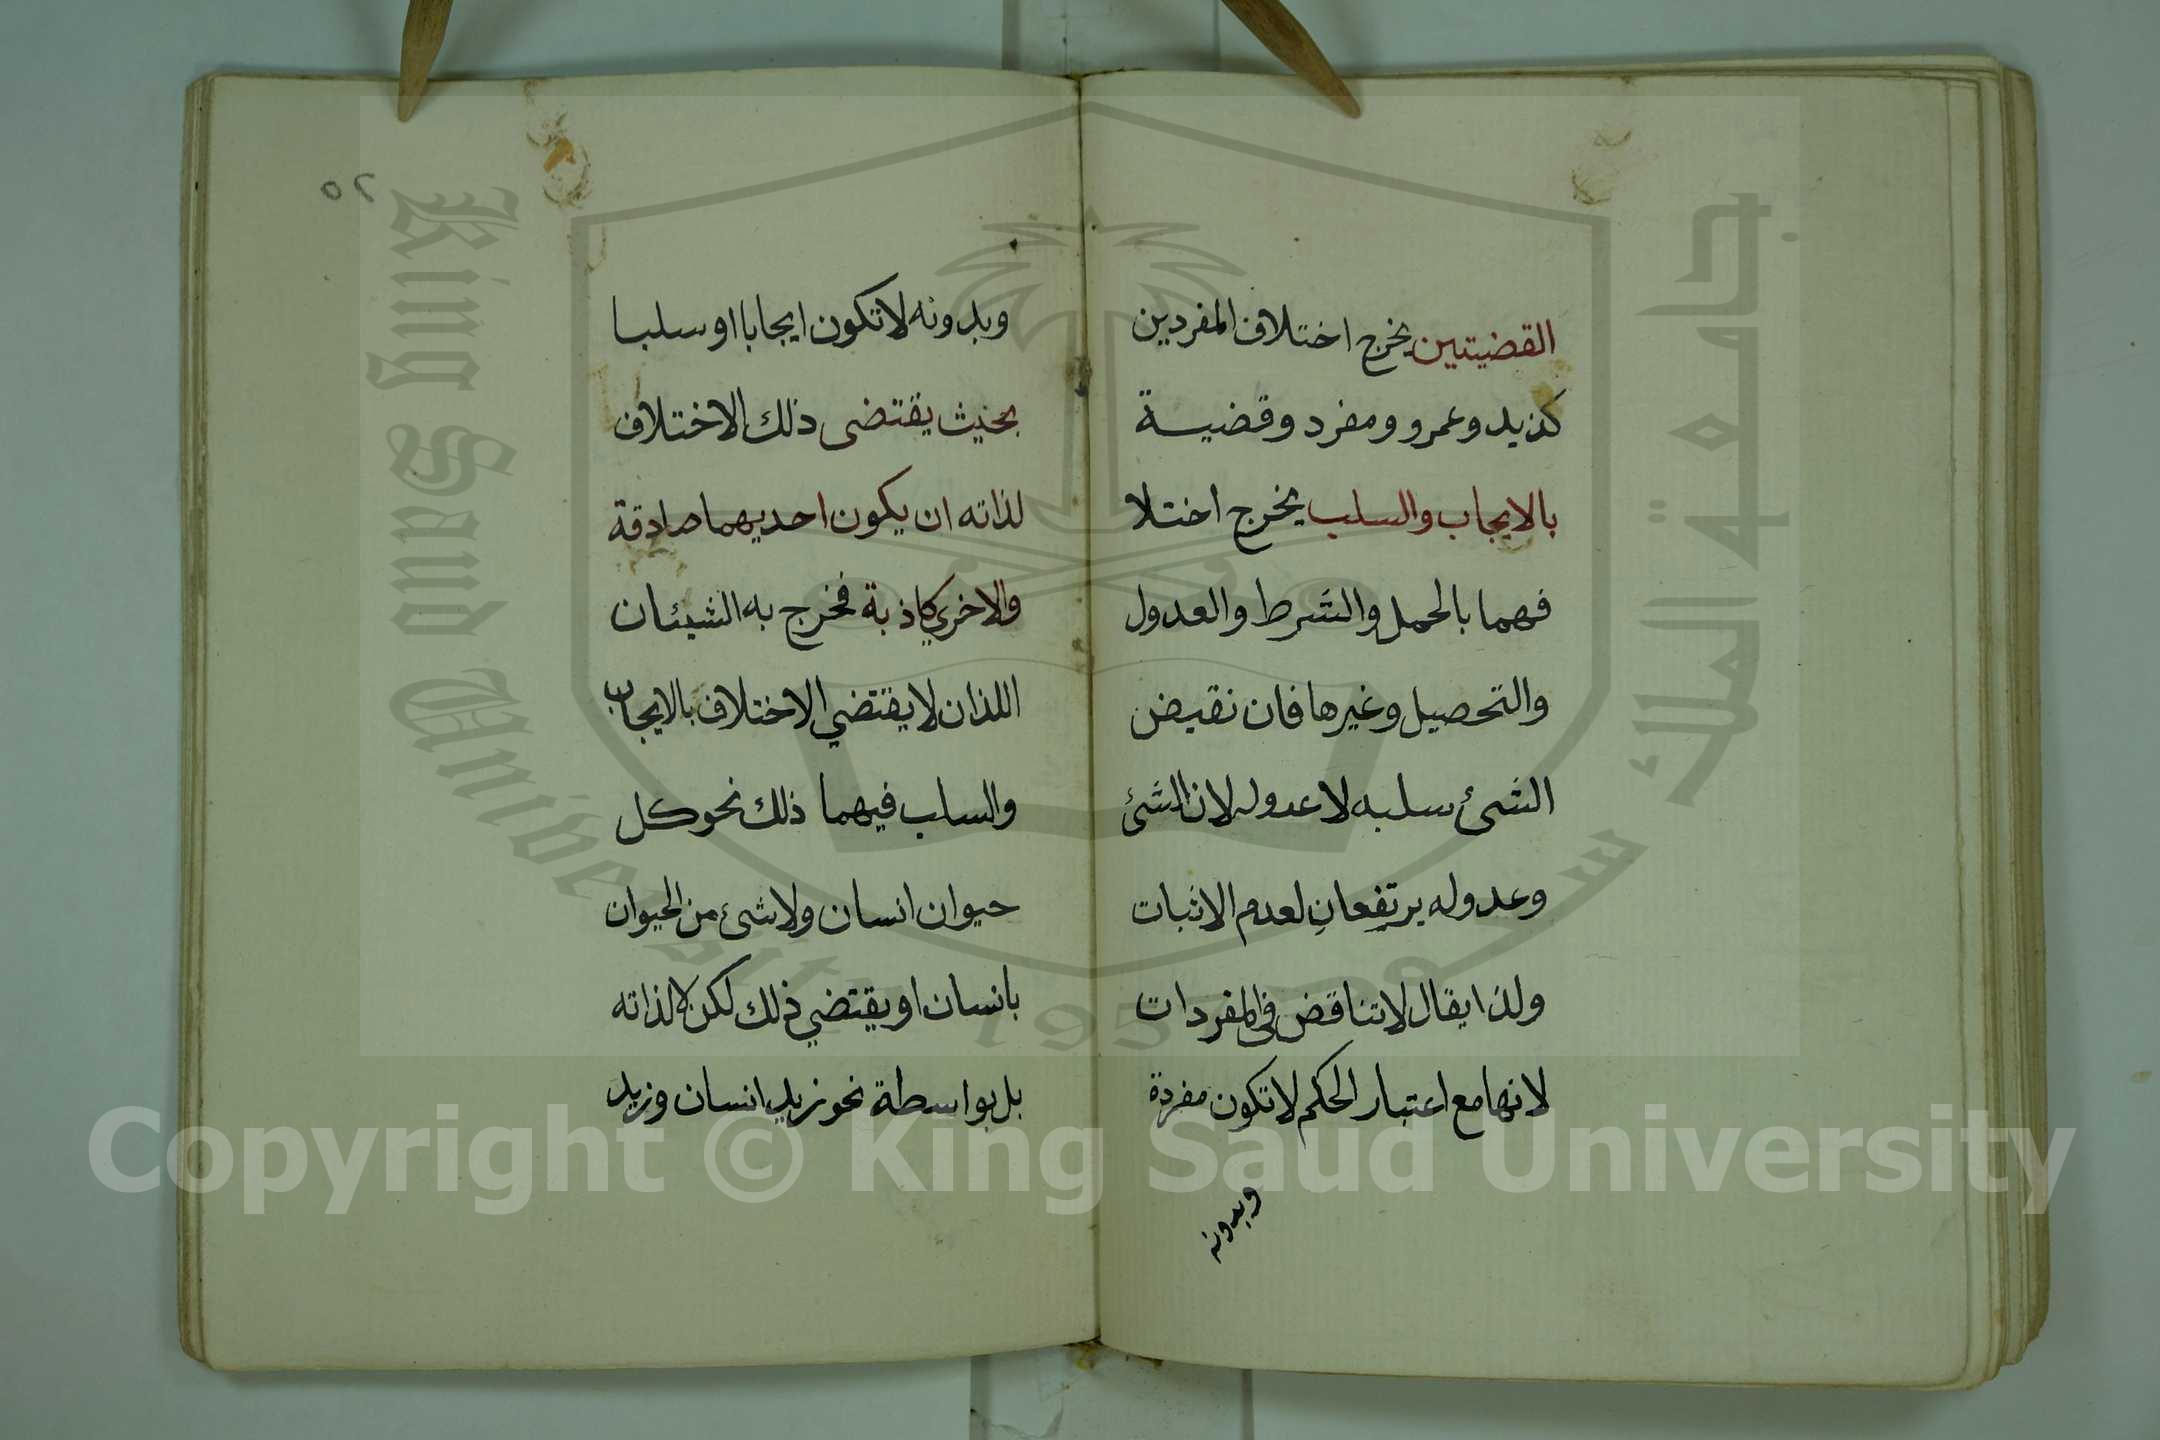 القضيتين يخرج اختلاف المفردين
كزيد وعمرو ومفرد وقضية
بالايجاب والسلب يخرج اختلا
فهما بالحمل والشرط والعدول
والتحصيل وغيرها فان نقيض
الشئ سلبه لا عدوله لان الشئ
وعدوله يرتفعان لعدم الاثبات
ولذا يقال لا تناقض في المفردات
لانها مع اعتبار الحكم لا تكون مفردة
وبدونه
٢٥
وبدونه لا تكون ايجابا او سلبا
بحيث يقتضى ذلك الاختلاف
لذاته ان يكون احديهما صادقة
والاخرى كاذبة فخرج به الشيئان
اللذان لا يقتضي الاختلاف بالايجاب
والسلب فيهما ذلك نحو كل
حيوان انسان ولا شئ من الحيوان
بانسان او يقتضي ذلك لكن لا لذاته
بل بواسطة نحو زيد انسان وزيد
جامعة الملك سعود
King Saud University
1957
Copyright © King Saud University